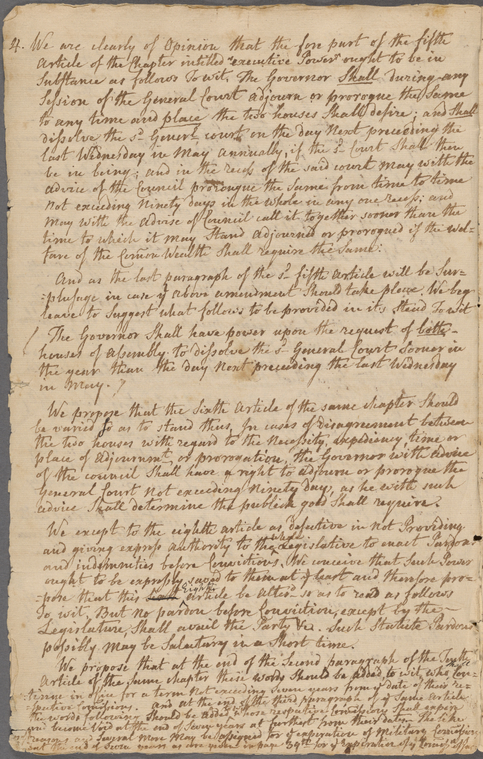 4. We are clearly of Opinion that the fore part of the fifth
Article of the Chapter intitled "executive Power" ought to be in
Substance as follows To wit, The Governor Shall during any
Session of the General Court adjourn or prorogue the Same
to any time and place the two houses Shall desire; and Shall
dissolve the sd. Genera. court on the day Next preceeding the
last Wednesday in May annually, if the sd. Court Shall then
be in being; and in the recess of the said court may with the
advice of the Council prorogue the Same from time to time
not exceeding Ninety days in the whole in any one recess; and
may with the advise of Council call it together sooner than the
time to which it may Stand adjourned or prorogued if the wel-
fare of the Comon Wealth Shall require the Same:
And as the last paragraph of the sd. fifth article will be Sur-
plusage in case ye above amendment Should take place, We beg
leave to Suggest what follows to be provided in its Stead To wit
The Governor Shall have power upon the request of both
houses of assembly to dissolve the sd. General Court Sooner in
the year than the day next preceding the last Wednesday
in May.
We propose that the Sixth Article of the same chapter Should
be varied so as to stand thus, In cases of disagreement between
the two houses with regard to the necessity, expediency, time or
place of adjournmt. or prorogation, the Governor with advice
of the council Shall have a right to adjourn or prorogue the
General Court not exceeding Ninety days, as he with such
advice Shall determine the publick good Shall require.
We except to the eighth article as defective in not Providing
and giving express authority to the whole Legislative to enact Pardons
and indemnities before Convictions. We conceive that Such Power
ought to be expressly saved to them at least and therefore pro-
pose that this eighth article be alterd. so as to read as follows
To wit, But no pardon before Conviction, except by the
Legislature, Shall avail the Party &c. Such Statute Pardons
possibly may be Salutary in a Short time.
We propose that at the end of the Second paragraph of the Tenth
Article of the Same chapter these words Should be added to wit, who Con-
tinue in office for a term not exceeding Seven years from ye date of their re-
spective Comissions. and at the end of the third paragraph of ye same Article
the words following Should be added whose respective Comissions Shall expire
and become void at the end of Seven years at furthest from their dates. The like
reasons and Several more may be assigned for ye expiration of Military Comissions
at the end of Seven years as are given in page 34th for ye expiration of